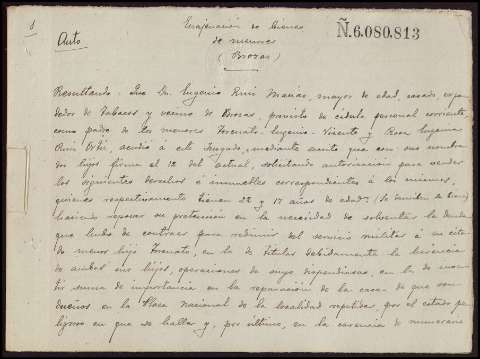 1
Enajenación de bienes
de menores
(Brozas)
Ñ.6.080.813
Auto
Resultando: Que Dn. Eugenio Ruiz Macías, mayor de edad, casado, expen
dedor de Tabacos y vecino de Brozas, provisto de cédula personal corriente,
como padre de los menores Torcuato Eugenio Vicente y Rosa Eugenia
Ruiz Ortiz, acudió á este Juzgado, mediante escrito que con sus nombra
dos hijos firma el 12 del actual, solicitando autorización para vender
los siguientes derechos é inmuebles correspondientes á los mismos,
quienes respectivamente tienen 22 y 17 años de edad:
haciendo reposar su pretensión en la necesidad de solventar la deuda
que hubo de contraer para redimir del servicio militar á su cita
do menor hijo Torcuato, en la de titular debidamente la herencia
de ambos sus hijos, operaciones de suyo dispendiosas, en la de inver
tir suma de importancia en la reparación de la casa de que son
dueños en la Plaza Nacional de la localidad repetida, por el estado pe
ligroso en que se halla y, por último, en la carencia de numerario